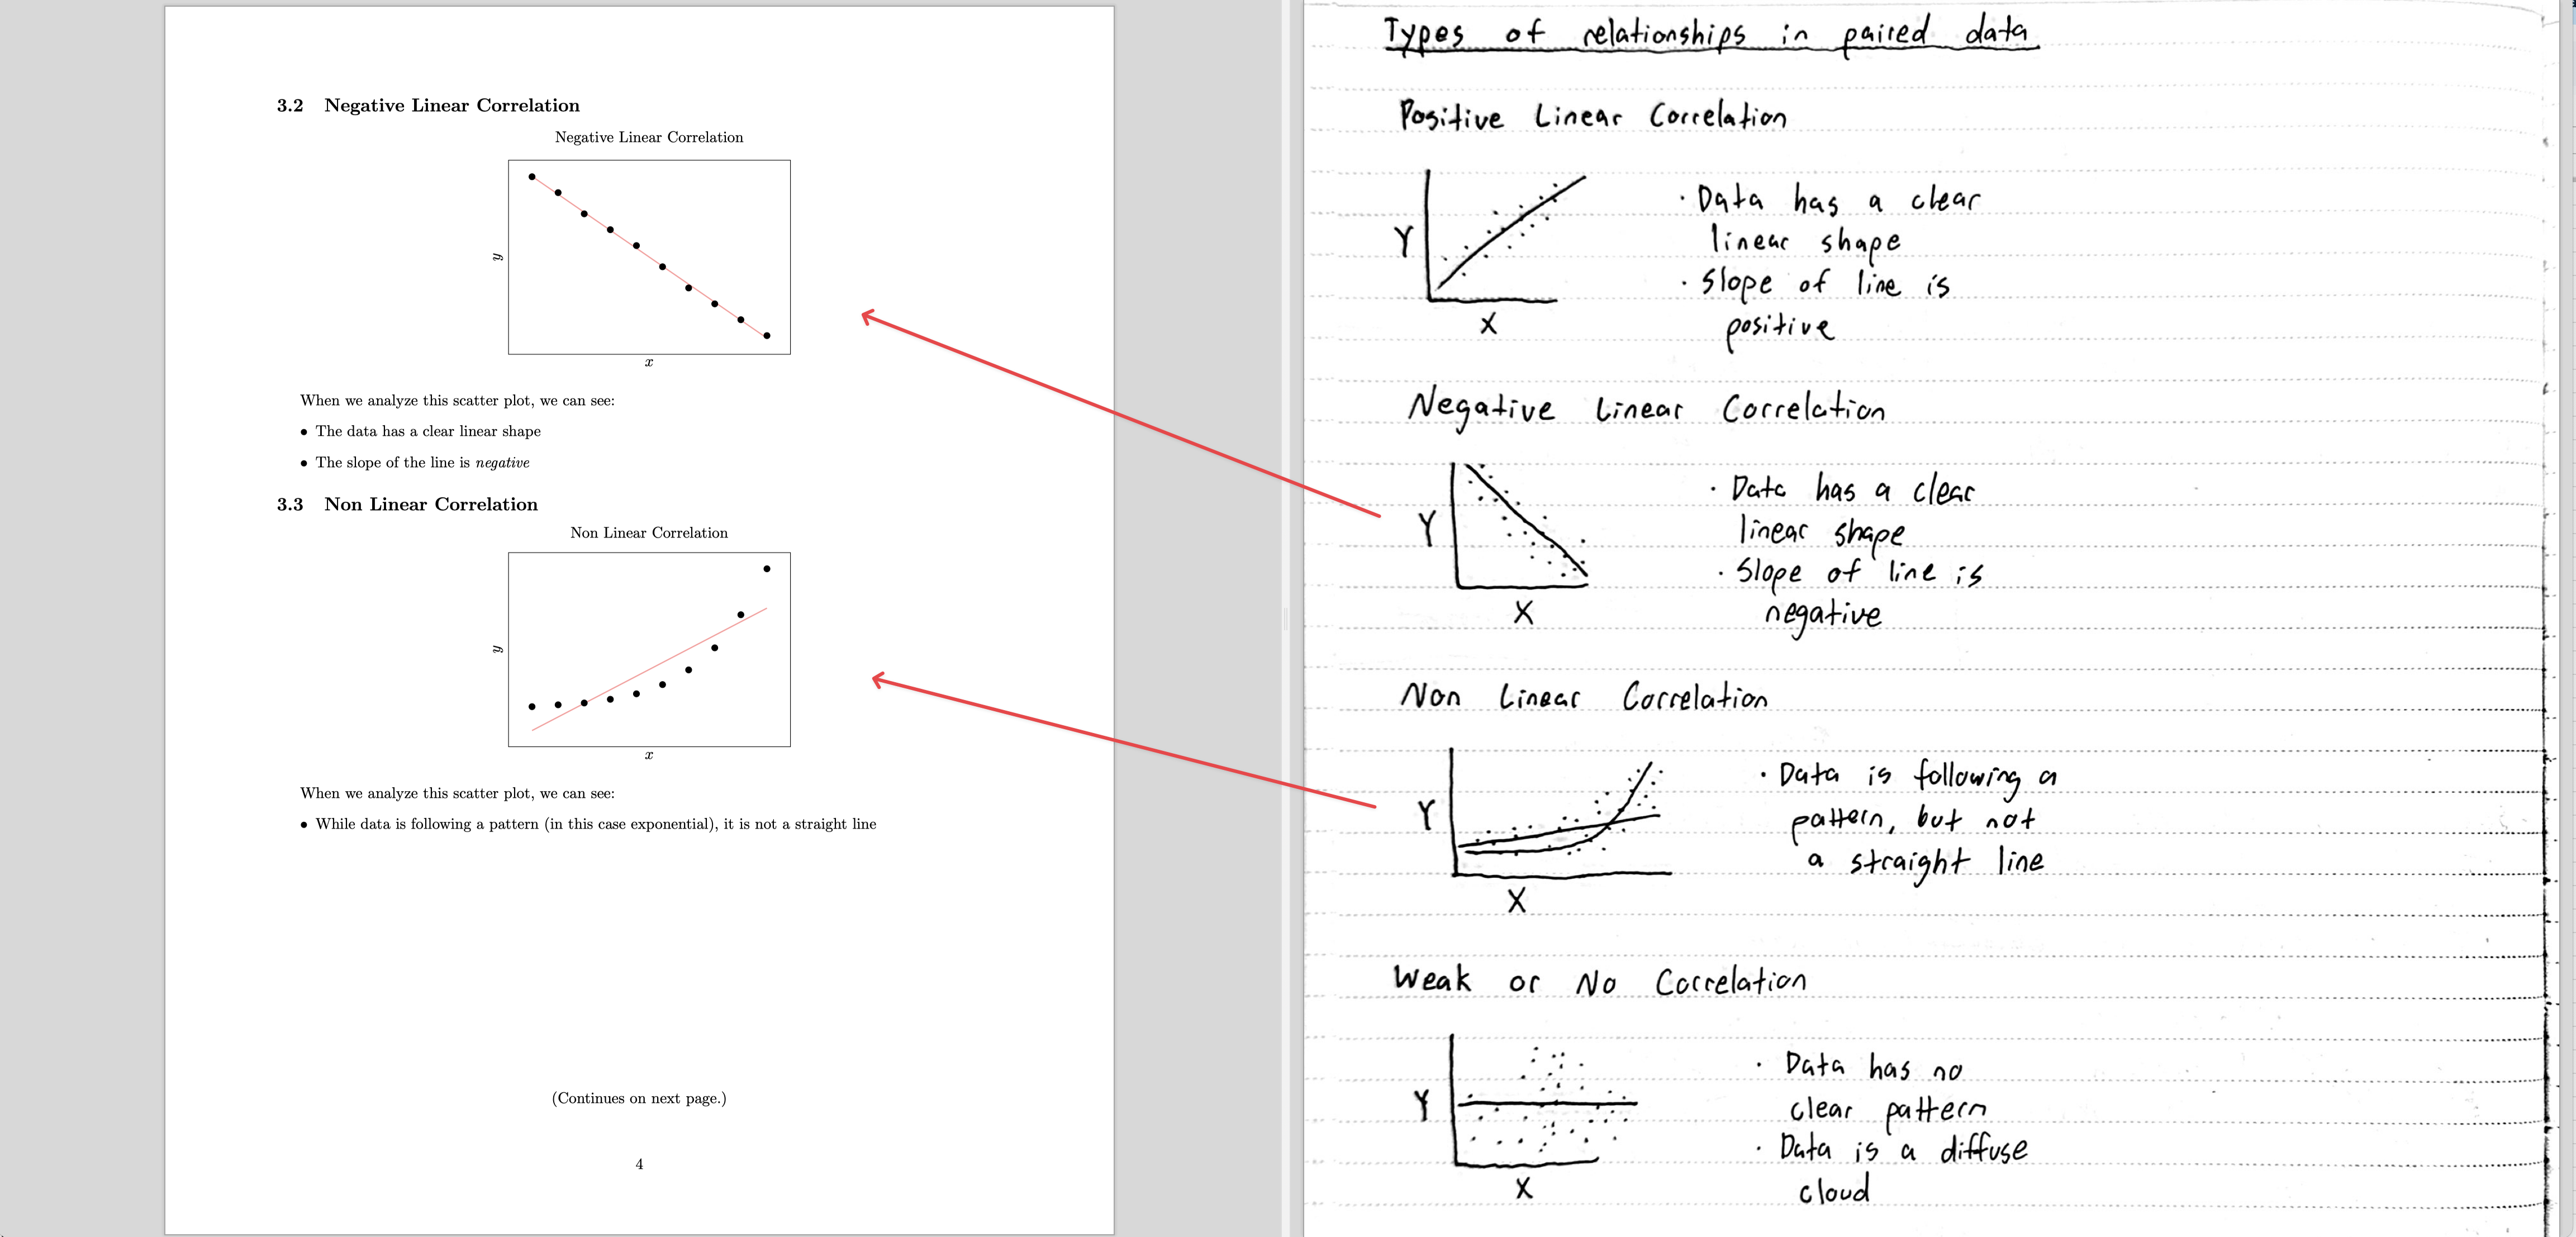 3.2 Negative Linear Correlation
Negative Linear Correlation
y
x
When we analyze this scatter plot, we can see:
• The data has a clear linear shape
• The slope of the line is negative
3.3 Non Linear Correlation
Non Linear Correlation
y
x
When we analyze this scatter plot, we can see:
• While data is following a pattern (in this case exponential), it is not a straight line
(Continues on next page.)
4
Types of relationships in paired data
Positive Linear Correlation
Y
X
· Data has a clear
linear shape
· Slope of line is
positive
Negative Linear Correlation
Y
X
· Data has a clear
linear shape
· Slope of line is
negative
Non Linear Correlation
Y
X
· Data is following a
pattern, but not
a straight line
Weak or No Correlation
Y
X
· Data has no
clear pattern
· Data is a diffuse
cloud